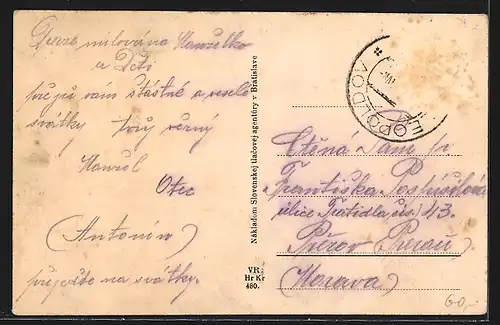 milována Manželko
a Děti
přeju vám šťastné a veselé
svátky tvůj věrný
Manžel
Otec
(Antonín)
přijedte na svátky.
Nákladom Slovenskej tlačovej agentúry v Bratislave
VR.
Hr Kr
480.
LEOPOLDOV
Ctěná Paní
Františka Pospíšilová
ulice 43.
Přerov Prerau
(Morava)
60,-